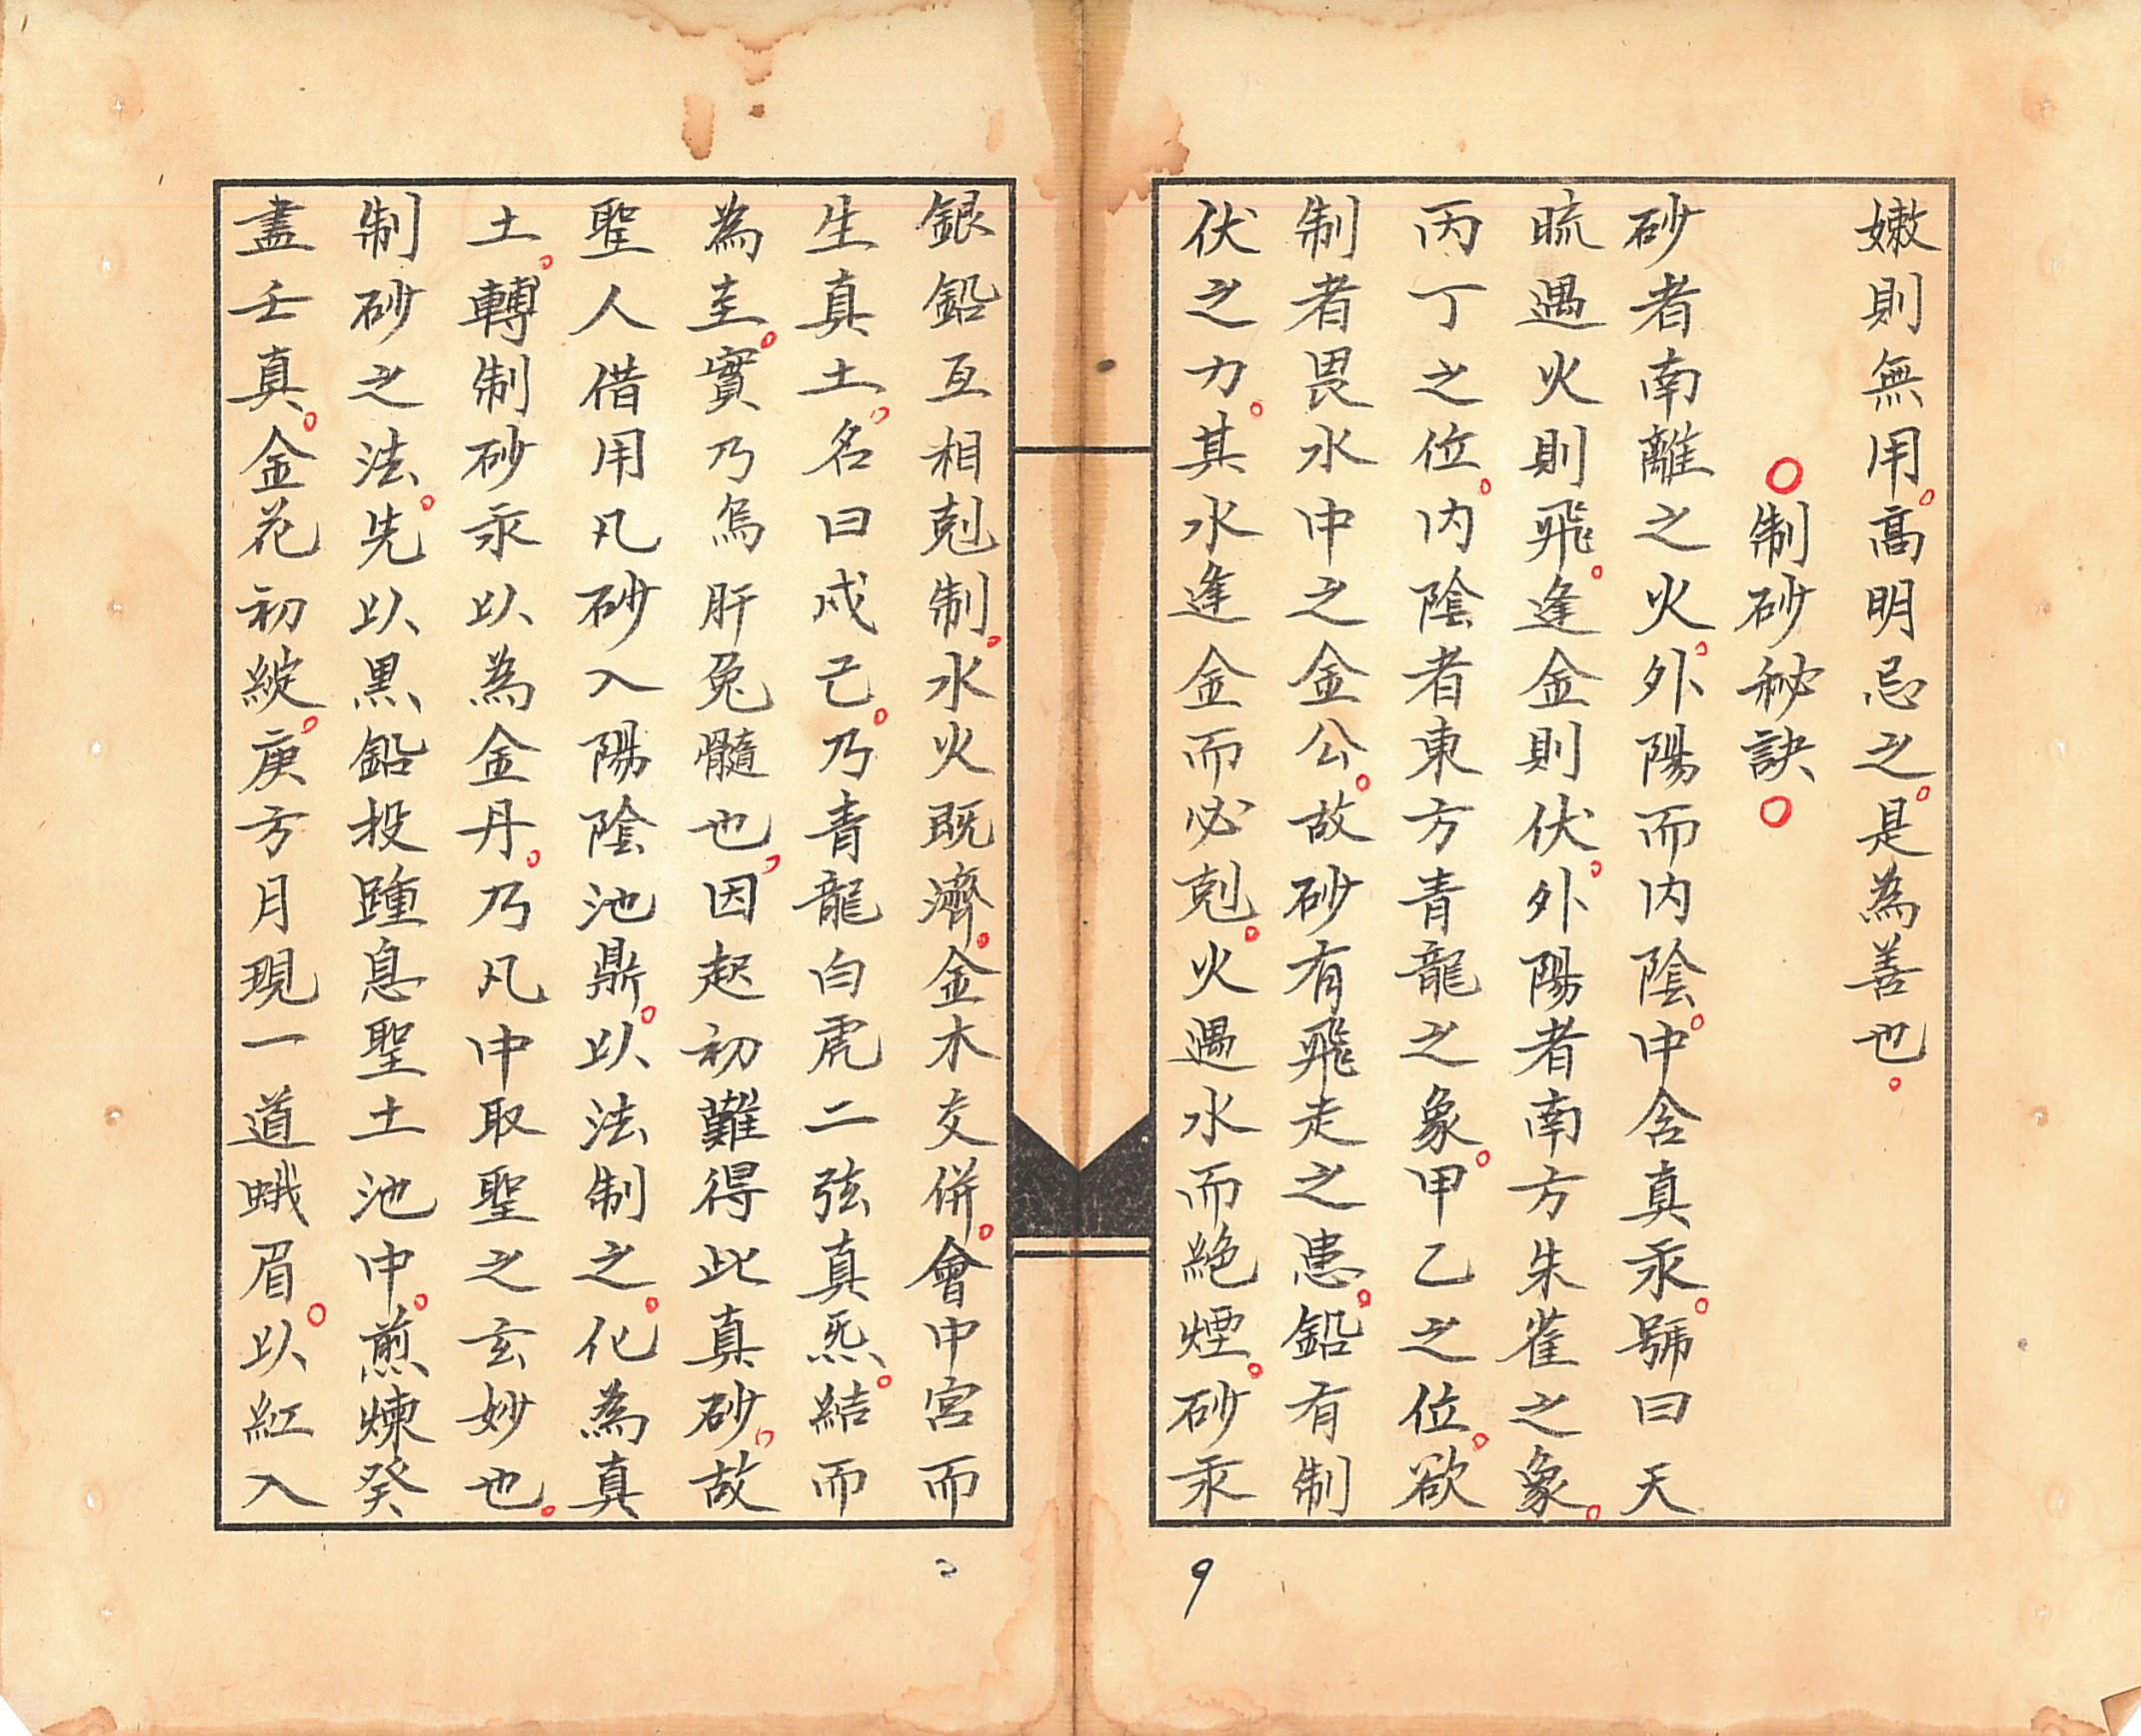 嫩則無用。高明忌之。是為善也。
○制砂秘訣○
砂者南離之火。外陽而内陰。中含真汞。號曰天
硫遇火則飛。逢金則伏。外陽者南方朱雀之象。
丙丁之位。内陰者東方青龍之象。甲乙之位。欲
制者畏水中之金公。故砂有飛走之患。鉛有制
伏之力。其水逢金而必剋。火遇水而絶煙。砂汞
銀鉛互相剋制。水火既濟。金木交併。會中宮而
生真土。名曰戍己。乃青龍白虎二弦真炁。結而
為圭。實乃烏肝兔髓也。因起初難得此真砂。故
聖人借用凡砂入陽陰池鼎。以法制之。化為真
土。轉制砂汞以為金丹。乃凡中取聖之玄妙也。
制砂之法。先以黑鉛投踵息聖土池中。煎煉癸
盡壬真。金花初綻。庚方月現一道蛾眉。以紅入
9